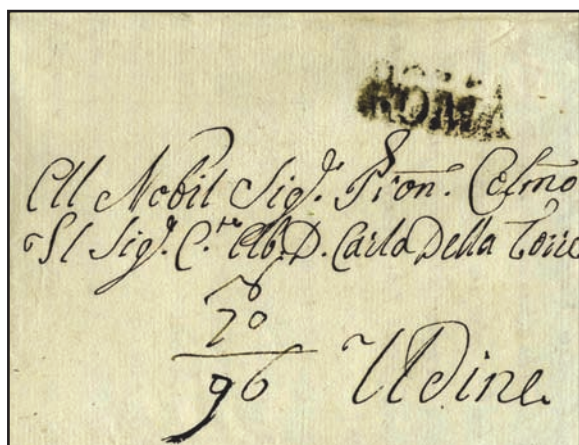 ROMA
All Nobil Sig.r Pron. Colmo
Il Sig.r C.te Ab. D. Carlo Della Torre
70
96
Udine